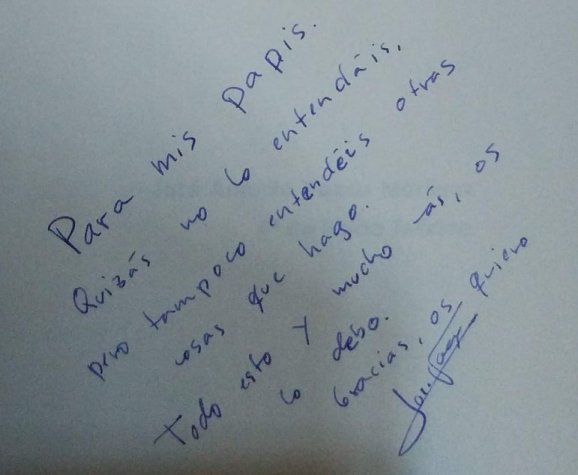 Para mis papis.
Quizás no lo entendáis,
pero tampoco entendéis otras
cosas que hago.
Todo esto y mucho ás, os
lo debo.
Gracias, os quiero